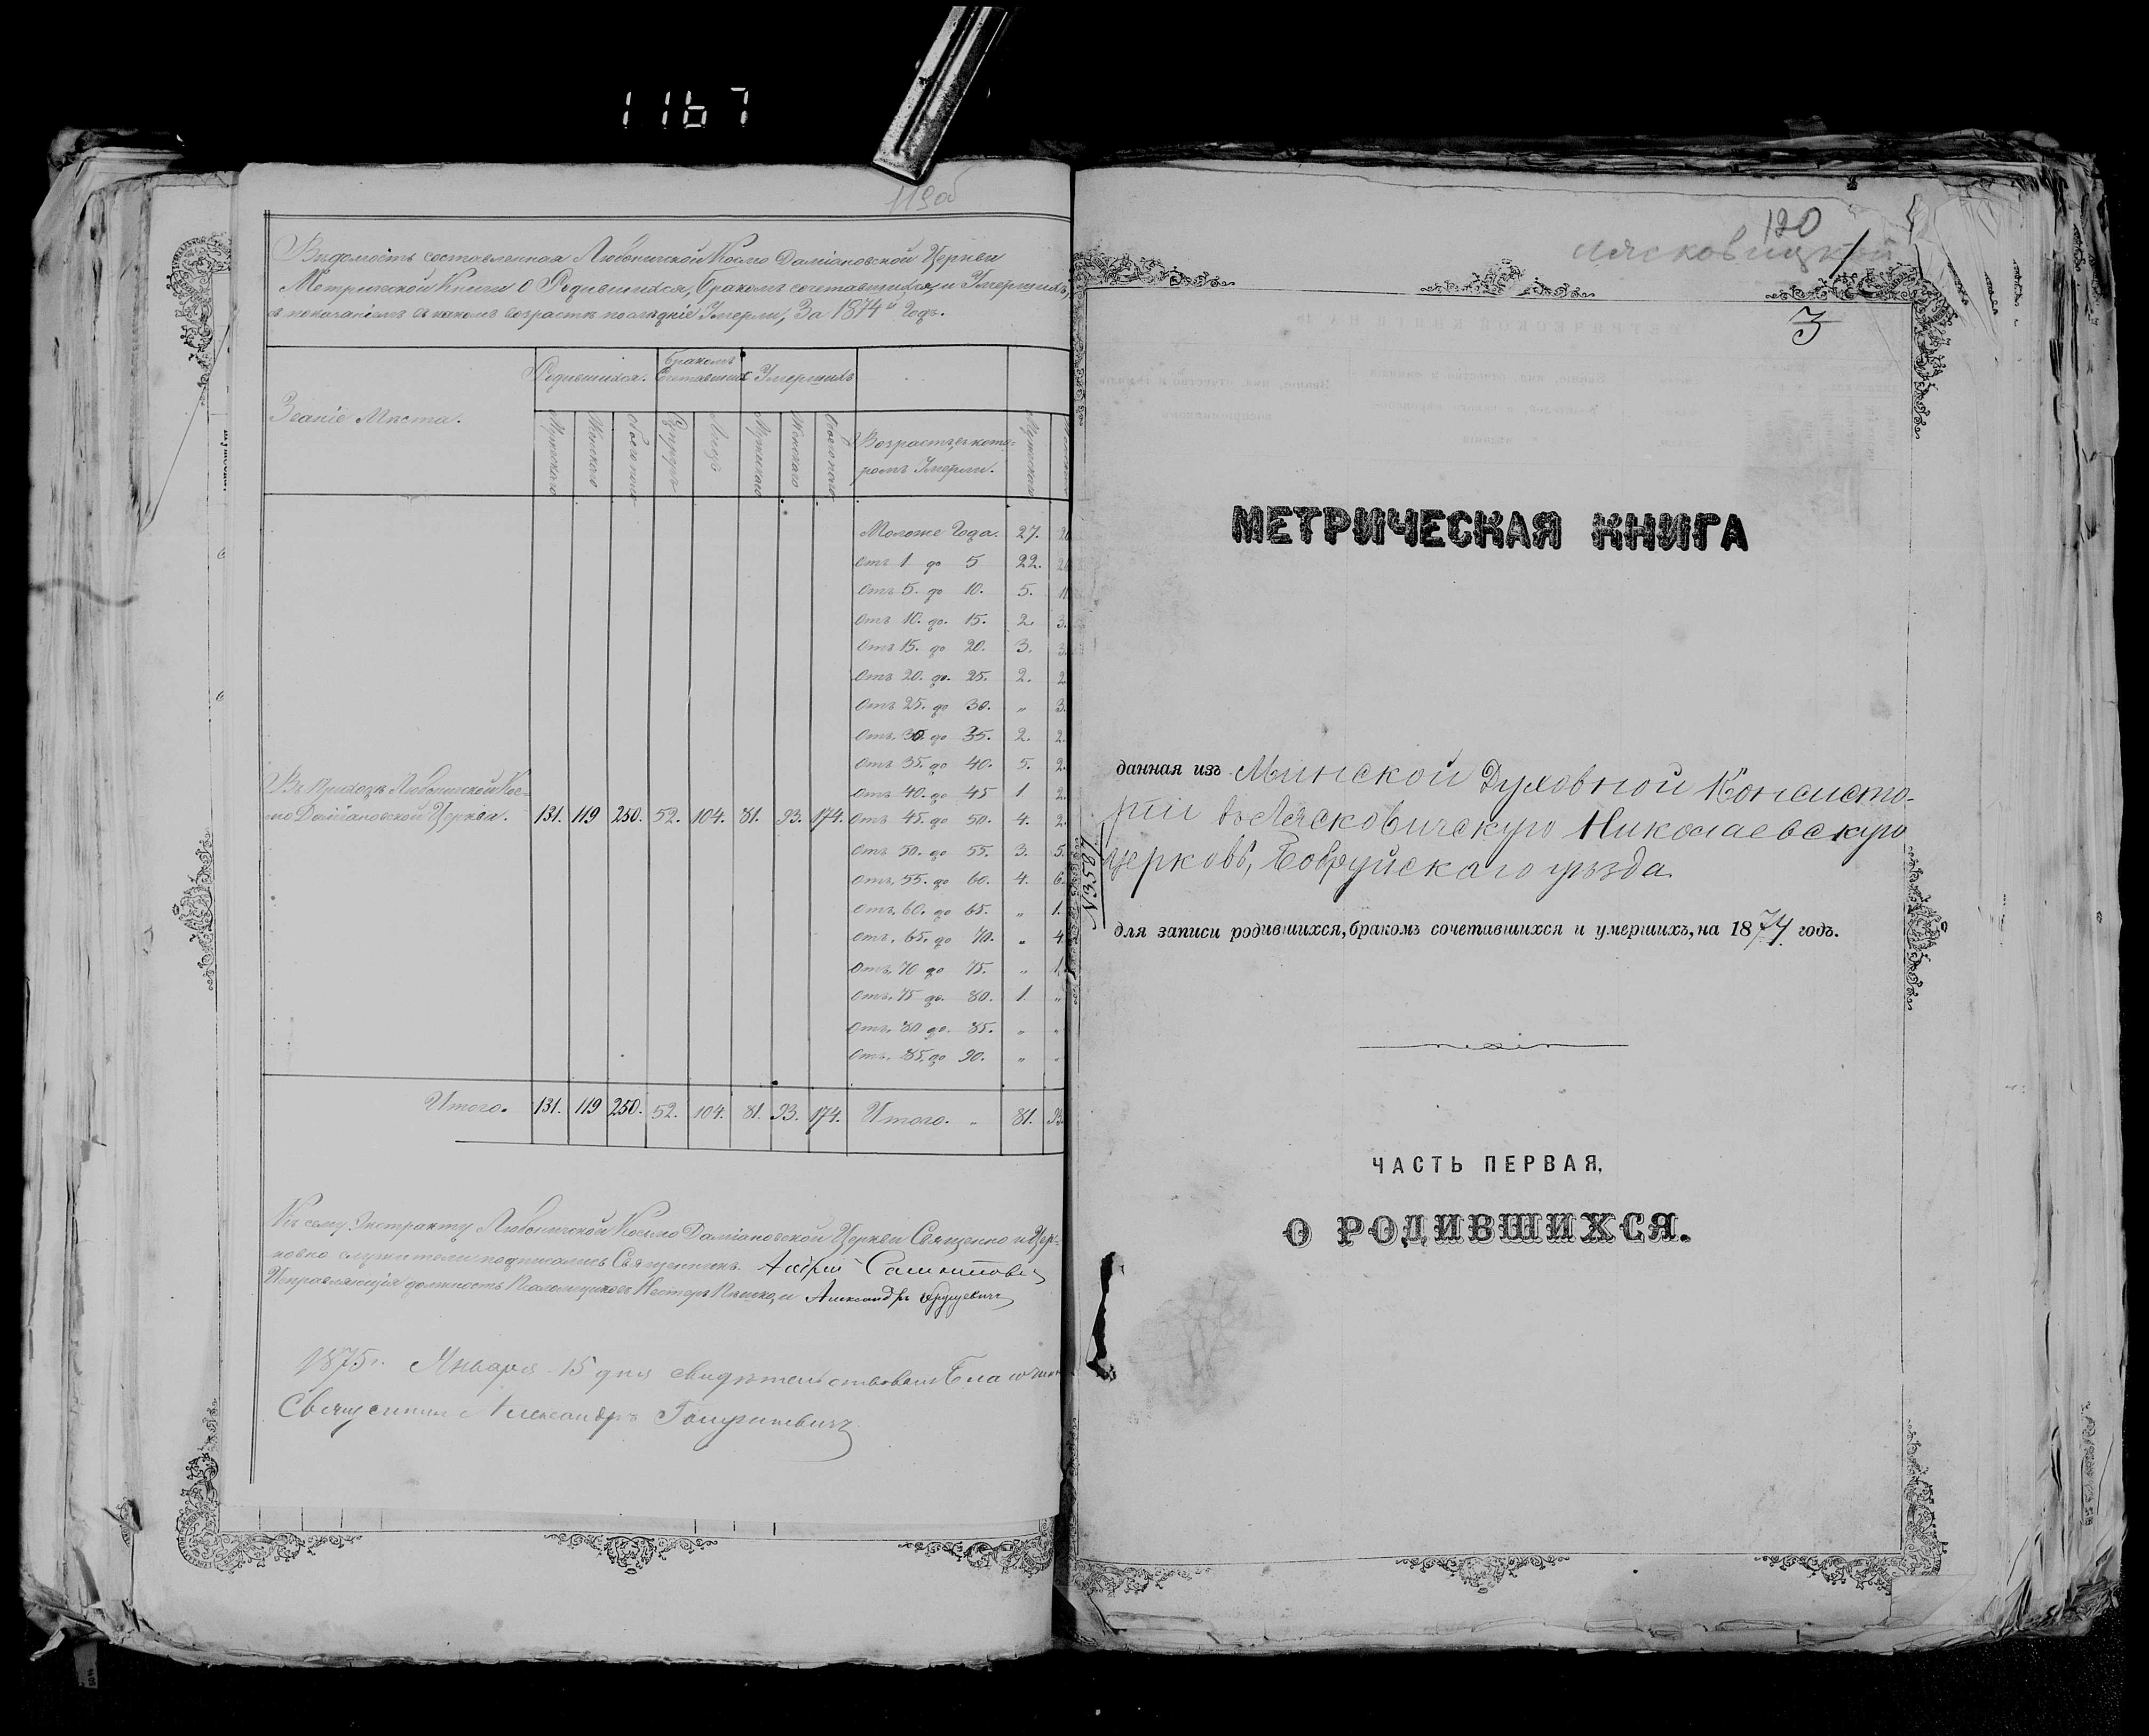 1167
119об
Вѣдомость составленная Любоничской Космо Даміановской Церкви
Метрической Книги о Родившихся, бракомъ сочетавшихся и Умершихъ,
съ показаніемъ въ какомъ возрастѣ послѣдніе Умерли, За 1874й Годъ.
Званіе Мѣста.
Родившихся.
бракомъ Сочетавших
Умершихъ
Мужескаго
Женскаго
Обоего пола
Супруж.
Лицъ
Мужескаго
Женскаго
Обоего пола
Возрастъ въ кото-
ромъ Умерли.
Мужескаго
Моложе Года. 27. 20
Отъ 1 до 5 22.
Отъ 5. до 10. 5.
Отъ 10. до. 15. 2. 3.
Отъ 15. до 20. 3. 3.
Отъ 20. до. 25. 2. 2.
Отъ 25. до 30. „ 3.
Отъ 30. до 35. 2. 2.
Отъ 35. до 40. 5. 2.
Отъ 40. до 45 1 2.
Въ Приходѣ Любоничской Кос-
мо Даміановской Церкви. 131. 119 250. 52. 104. 81. 93. 174. Отъ 45. до 50. 4. 2.
Отъ 50. до 55. 3. 5.
Отъ 55. до 60. 4. 6.
Отъ 60. до 65. „ 1.
Отъ 65. до 70. „ 4.
Отъ 70 до 75. „ 1.
Отъ 75 до. 80. 1. „
Отъ 80 до. 85. „ „
Отъ 85. до 90. „ „
Итого. 131. 119 250. 52. 104. 81. 93. 174. Итого. „ 81. 93.
Къ сему Экстракту Любоничской Космо Даміановской Церкви Священно и Цер-
ковно служители подписались Священникъ
Исправляющія должность Несторъ и Александръ
1875 г. Января 15 дня свидѣтельствовалъ
Священникъ Александръ
120
Лясковицкой
1
3
МЕТРИЧЕСКАЯ КНИГА
данная изъ Минской Духовной Консисто-
ріи въ Лясковичскую Николаевскую
церковь, Бобруйскаго уѣзда
№358
для записи родившихся, бракомъ сочетавшихся и умершихъ, на 1874 годъ.
ЧАСТЬ ПЕРВАЯ,
О РОДИВШИХСЯ.